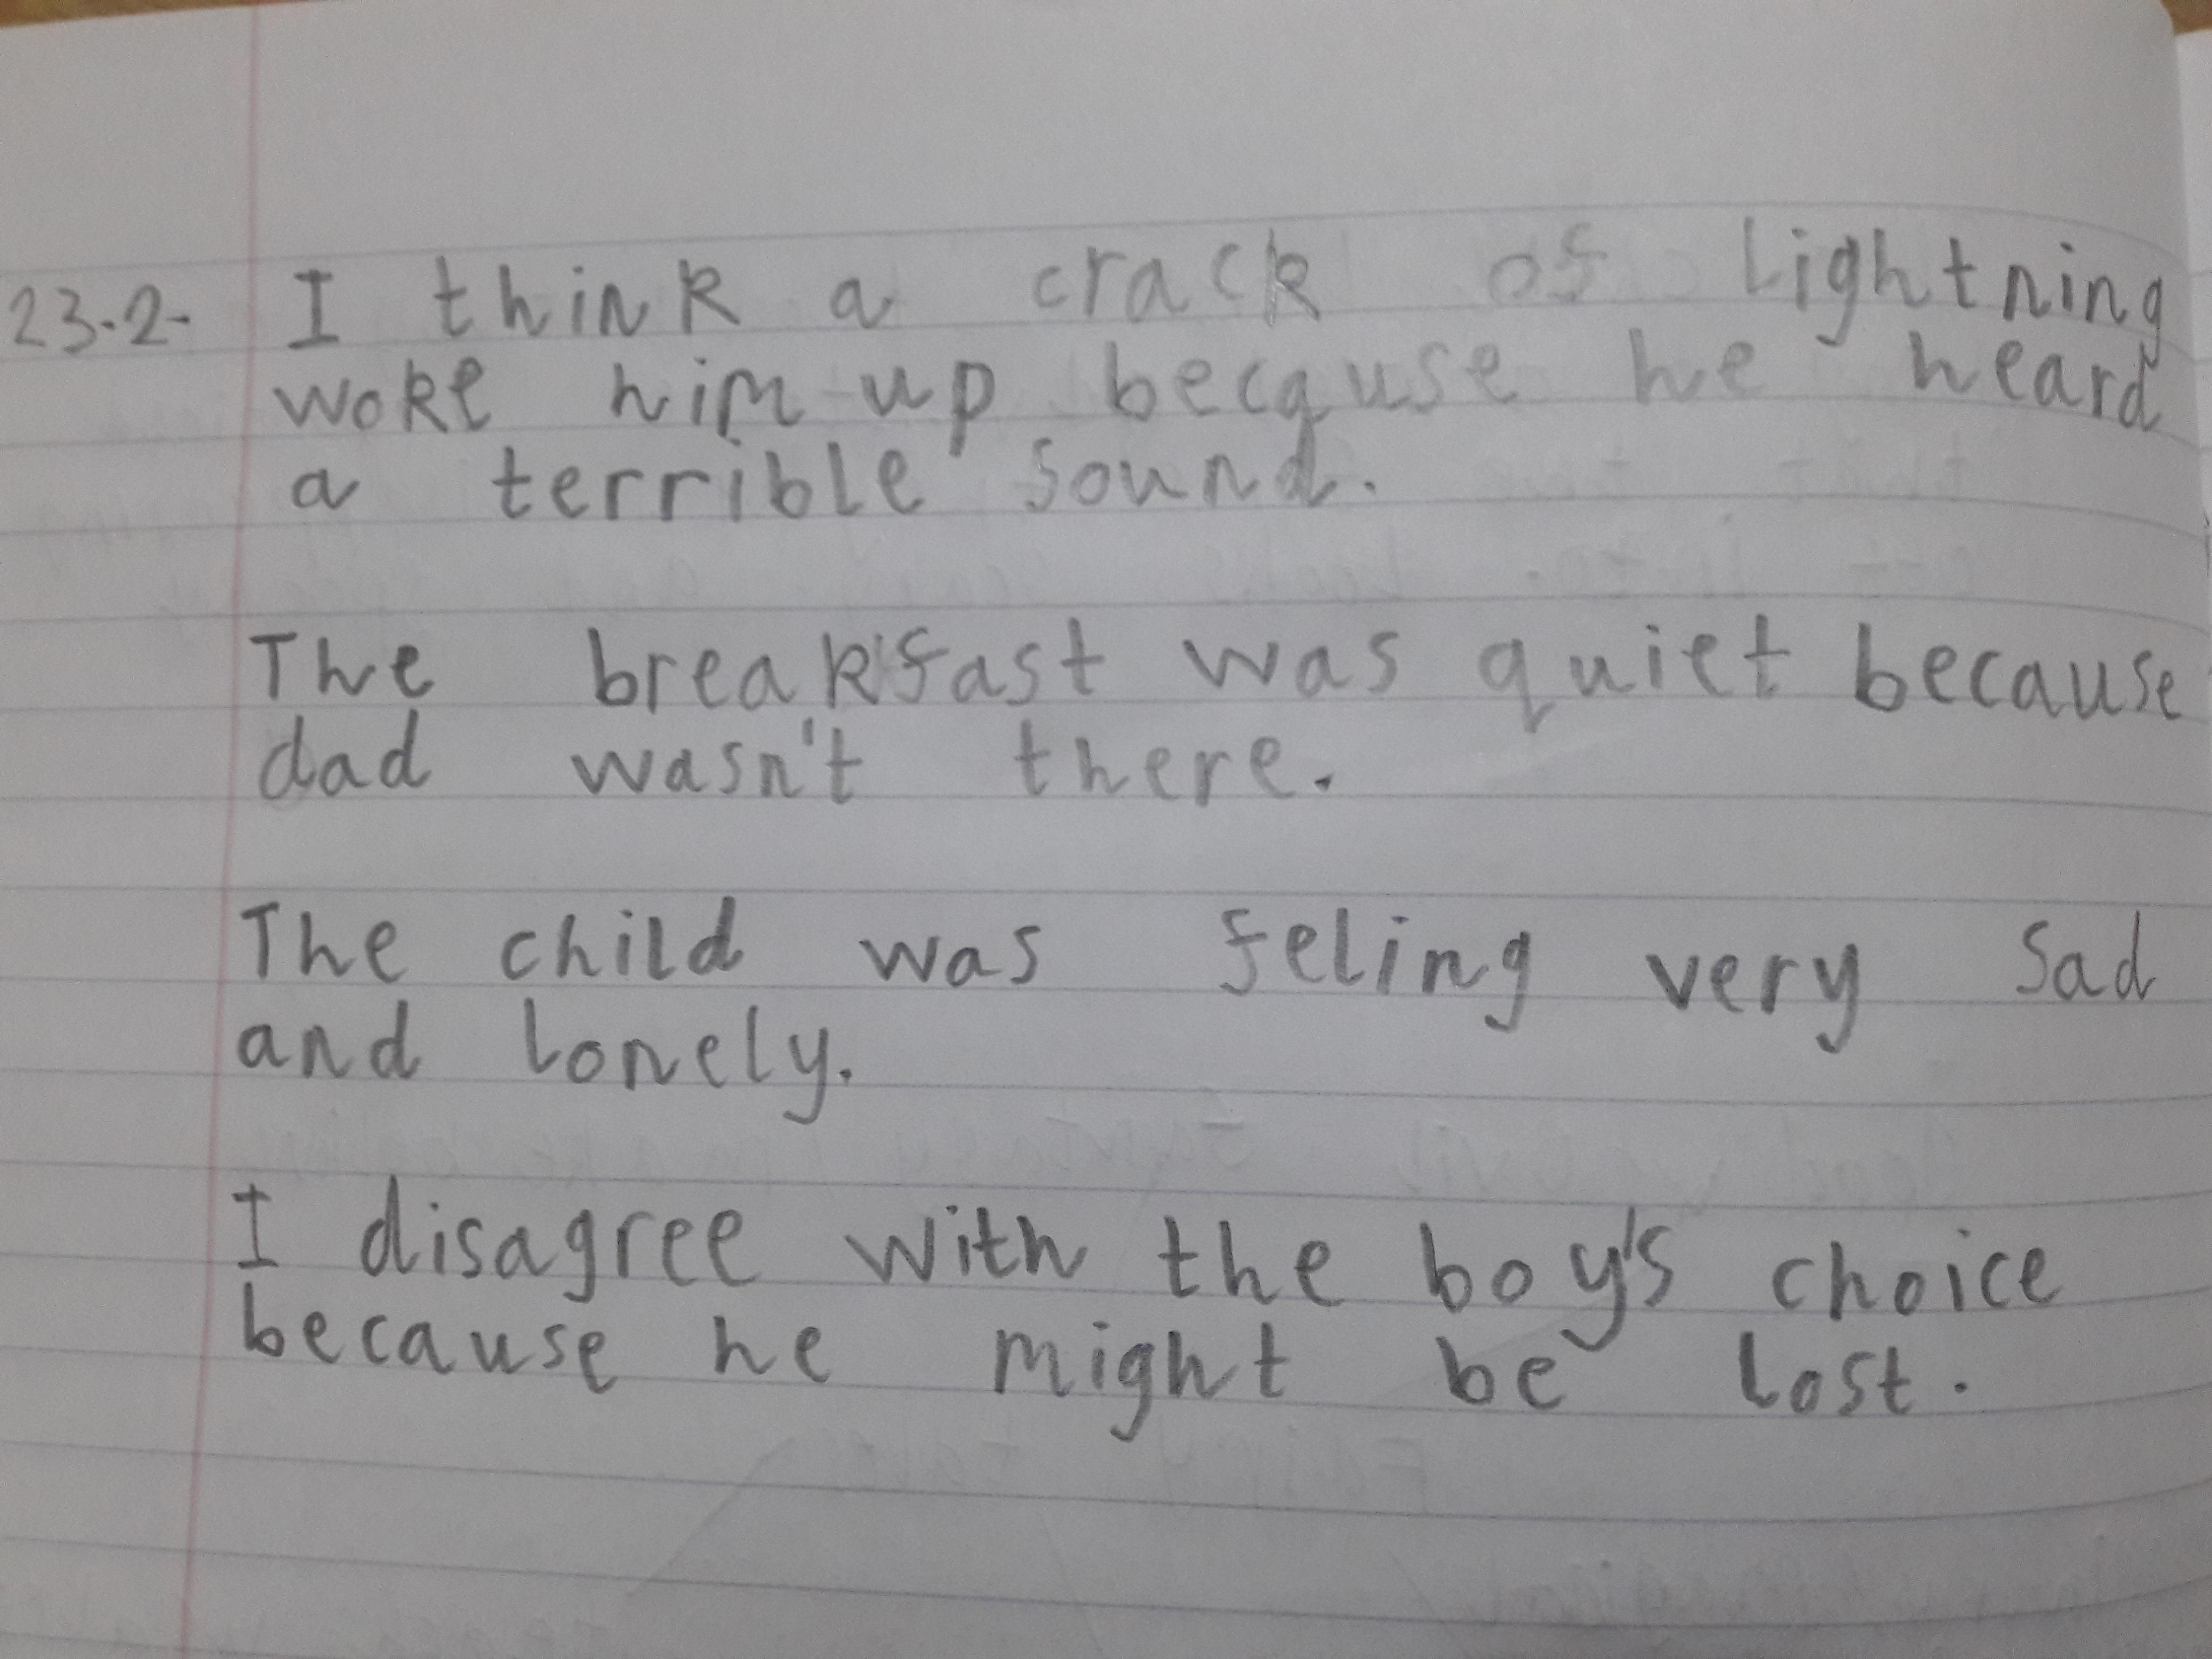 23.2. I think a crack of lightning
woke him up because he heard
a terrible sound.
The breakfast was quiet because
dad wasn't there.
The child was feling very sad
and lonely.
I disagree with the boy's choice
because he might be lost.